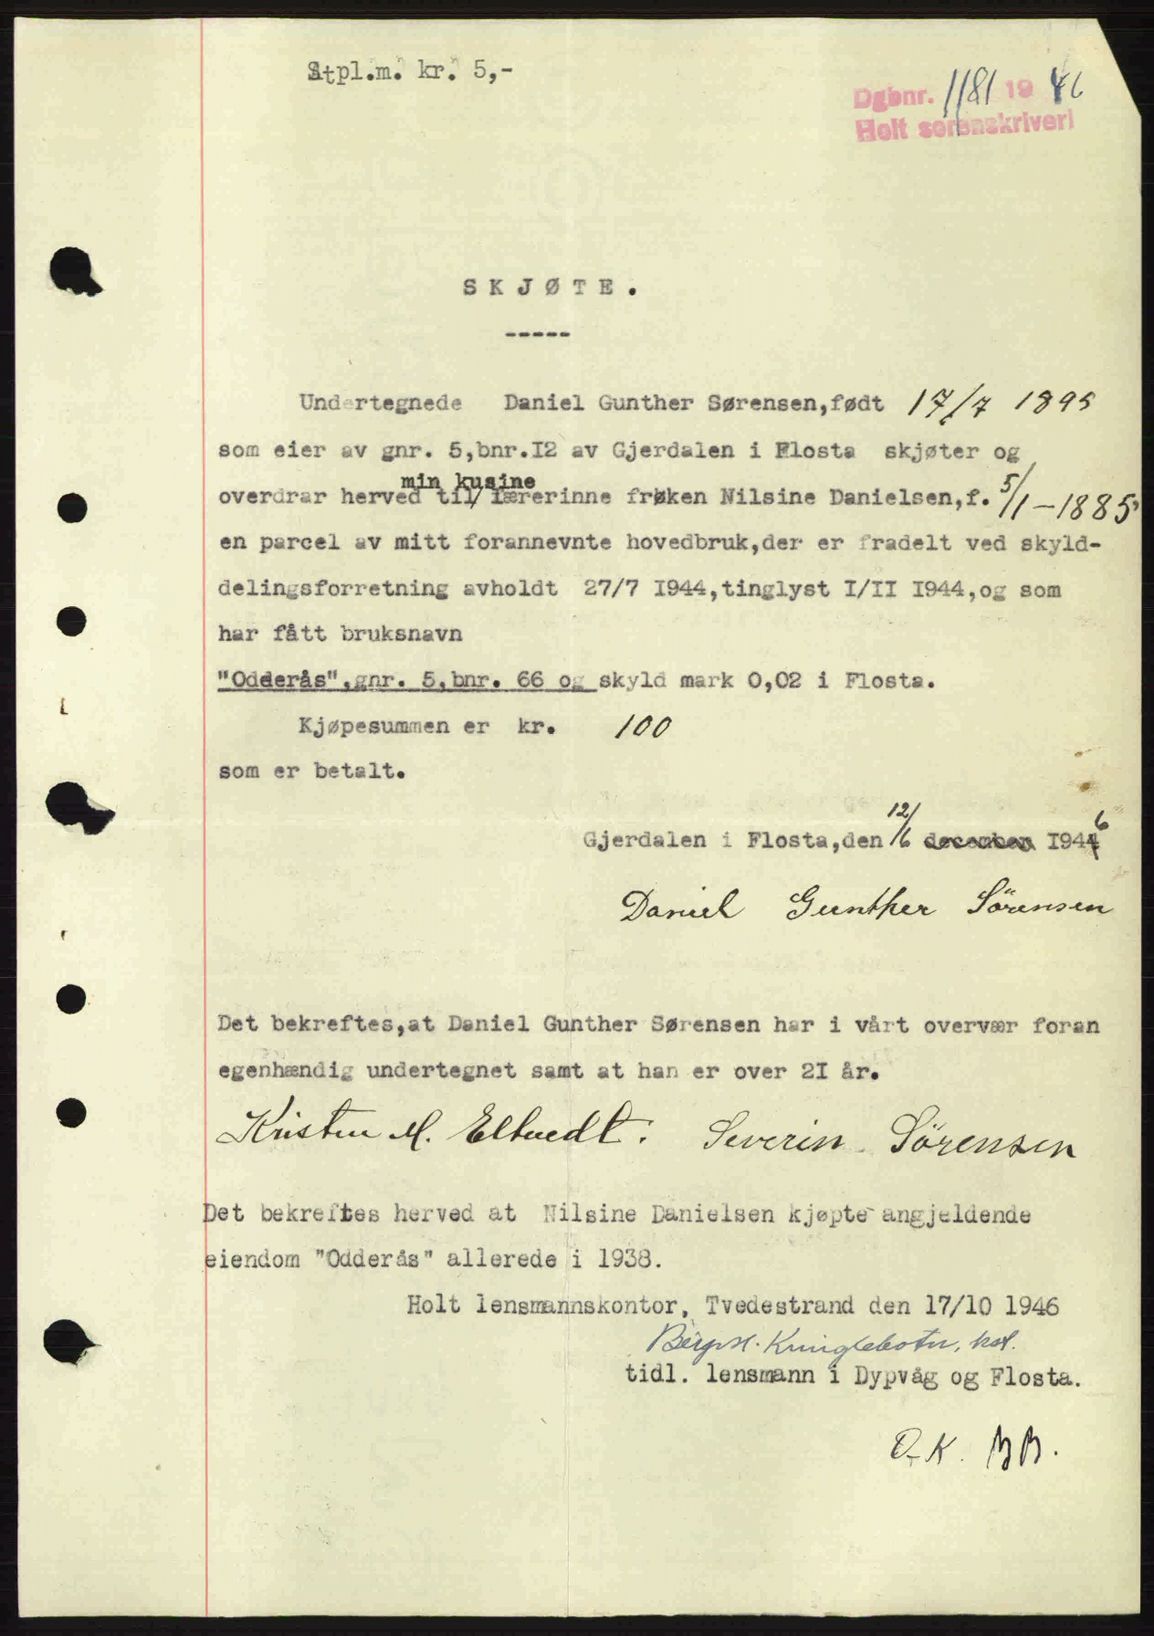 Stpl.m. kr. 5,-
Dgbnr. 1181 19 46
Holt sorenskriveri
SKJØTE.
-----
Undertegnede Daniel Gunther Sørensen,født 17/7 1895
som eier av gnr. 5,bnr.I2 av Gjerdalen i Flosta skjøter og
min kusine
overdrar herved til/ lærerinne frøken Nilsine Danielsen,f. 5/1-1885
en parcel av mitt forannevnte hovedbruk,der er fradelt ved skyld-
delingsforretning avholdt 27/7 I944,tinglyst I/II I944,og som
har fått bruksnavn
"Odderås",gnr. 5,bnr. 66 og skyld mark 0,02 i Flosta.
Kjøpesummen er kr. 100
som er betalt.
Gjerdalen i Flosta,den 12/6 december I9446
Daniel Gunther Sörensen
Det bekreftes,at Daniel Gunther Sørensen har i vårt overvær foran
egenhændig undertegnet samt at han er over 2I år.
Kristen M. Eltvedt. Severin Sörensen
Det bekreftes herved at Nilsine Danielsen kjøpte angjeldende
eiendom "Odderås" allerede i 1938.
Holt lensmannskontor, Tvedestrand den 17/10 1946
Kringlebotn, kst.
tidl. lensmann i Dypvåg og Flosta.
O.K. BB.